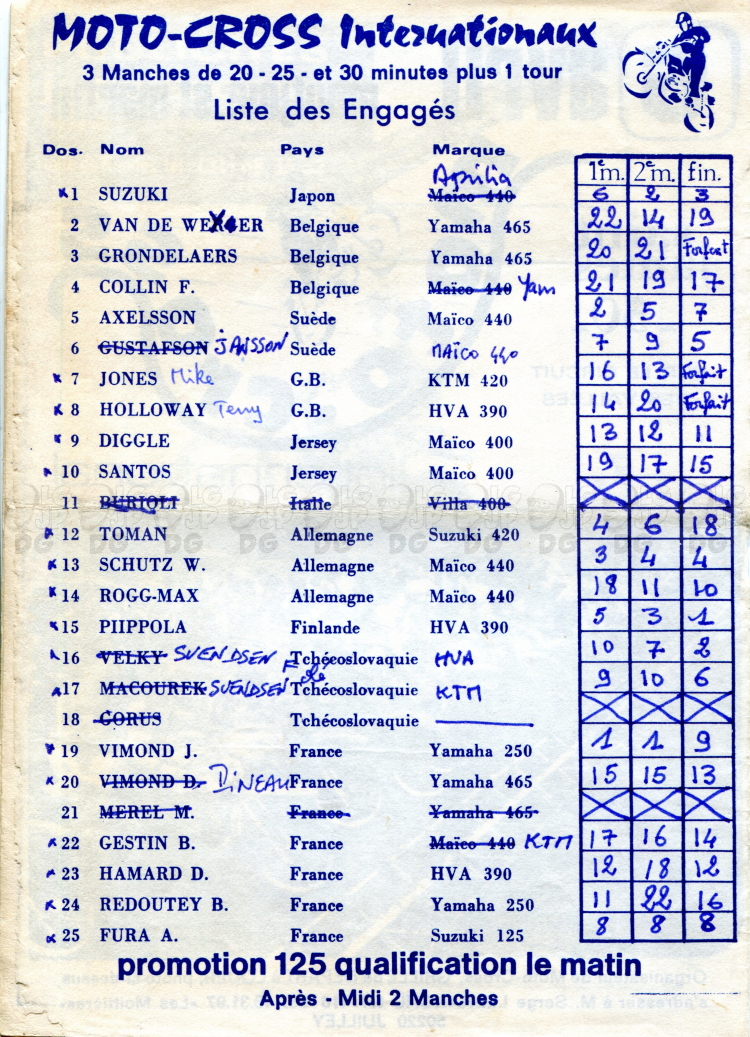 MOTO-CROSS Internationaux
3 Manches de 20 - 25 - et 30 minutes plus 1 tour
Liste des Engagés
Dos. Nom Pays Marque 1e m. 2e m. fin.
1 SUZUKI Japon Maïco 440 Aprilia 6 2 3
2 VAN DE WERVER Belgique Yamaha 465 22 14 19
3 GRONDELAERS Belgique Yamaha 465 20 21 Forfait
4 COLLIN F. Belgique Maïco 440 Yam 21 19 17
5 AXELSSON Suède Maïco 440 2 5 7
6 GUSTAFSON JANSSON Suède MAÏCO 440 7 9 5
7 JONES Mike G.B. KTM 420 16 13 Forfait
8 HOLLOWAY Terry G.B. HVA 390 14 20 Forfait
9 DIGGLE Jersey Maïco 400 13 12 11
10 SANTOS Jersey Maïco 400 19 17 15
11 BURIOLI Italie Villa 400
12 TOMAN Allemagne Suzuki 420 4 6 18
13 SCHUTZ W. Allemagne Maïco 440 3 4 4
14 ROGG-MAX Allemagne Maïco 440 18 11 10
15 PIIPPOLA Finlande HVA 390 5 3 1
16 VELKY SVENDSEN F Tchécoslovaquie HVA 10 7 2
17 MACOUREK SVENDSEN Tchécoslovaquie KTM 9 10 6
18 GORUS Tchécoslovaquie
19 VIMOND J. France Yamaha 250 1 1 9
20 VIMOND D. DINEAU France Yamaha 465 15 15 13
21 MEREL M. France Yamaha 465
22 GESTIN B. France Maïco 440 KTM 17 16 14
23 HAMARD D. France HVA 390 12 18 12
24 REDOUTEY B. France Yamaha 250 11 22 16
25 FURA A. France Suzuki 125 8 8 8
promotion 125 qualification le matin
Après - Midi 2 Manches
50220 JUILLEY